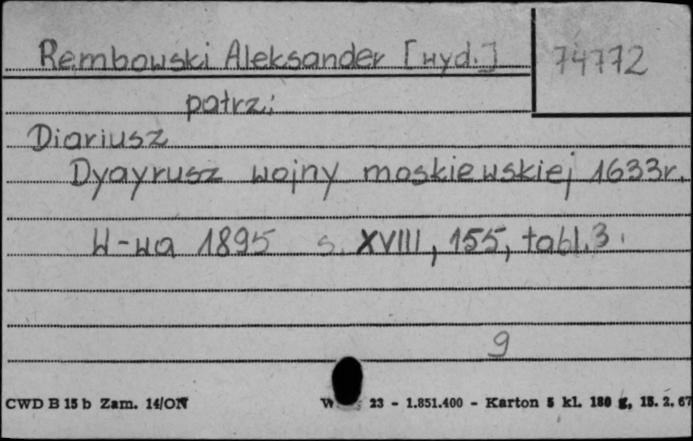 Rembowski Aleksander [wyd.] 74772
patrz:
Diariusz
Dyayrusz wojny moskiewskiej 1633r.
W-wa 1895 s. XVIII, 155, tabl.3.
9
CWD B 15 b Zam. 14/ON 23 - 1.851.400 - Karton 5 kl. 180 g, 15. 2. 67